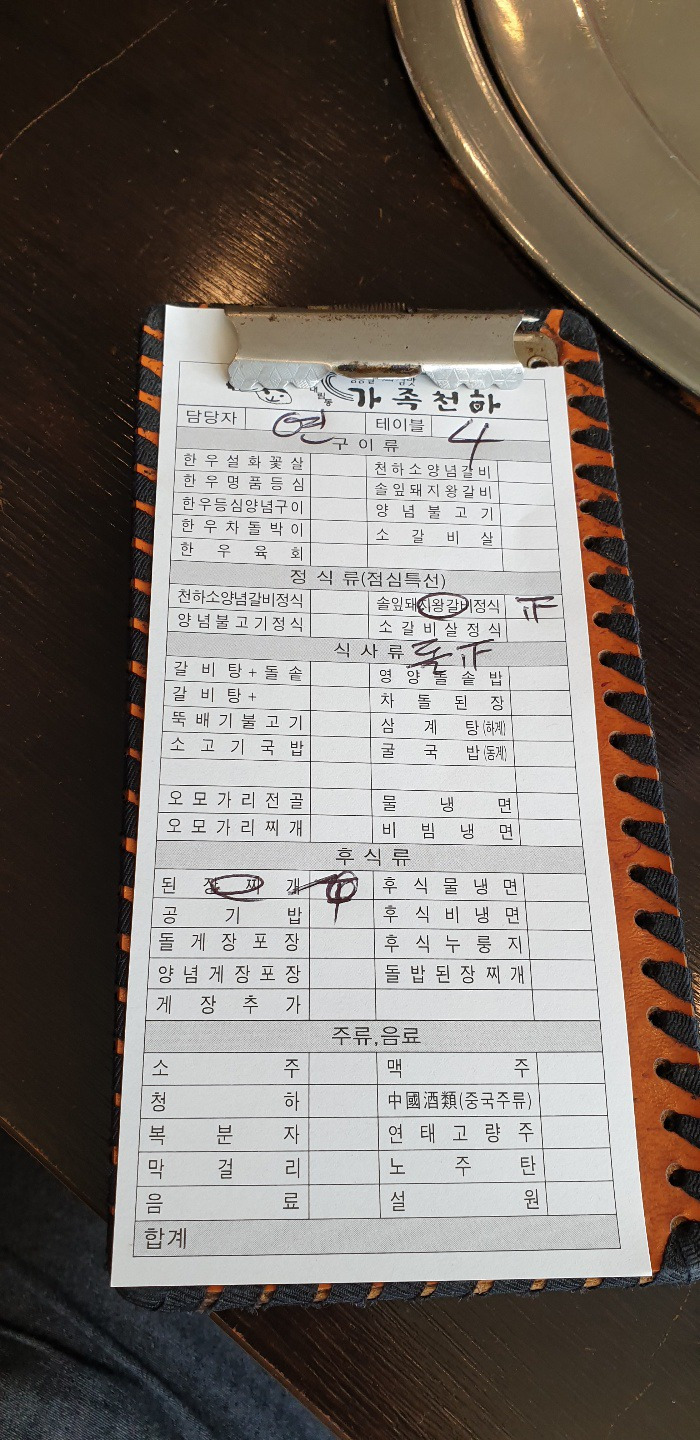 대림동 가족천하
담당자 연 테이블 4
구이류
한우설화꽃살 천하소양념갈비
한우명품등심 솔잎돼지왕갈비
한우등심양념구이 양념불고기
한우차돌박이 소갈비살
한우육회
정식류(점심특선)
천하소양념갈비정식 솔잎돼지왕갈비정식
양념불고기정식 소갈비살정식
식사류 돌
갈비탕+돌솥 영양돌솥밥
갈비탕+ 차돌된장
뚝배기불고기 삼계탕(하계)
소고기국밥 굴국밥(동계)
오모가리전골 물냉면
오모가리찌개 비빔냉면
후식류
된장찌개 후식물냉면
공기밥 후식비냉면
돌게장포장 후식누룽지
양념게장포장 돌밥된장찌개
게장추가
주류,음료
소주 맥주
청하 中國酒類(중국주류)
복분자 연태고량주
막걸리 노주탄
음료 설원
합계